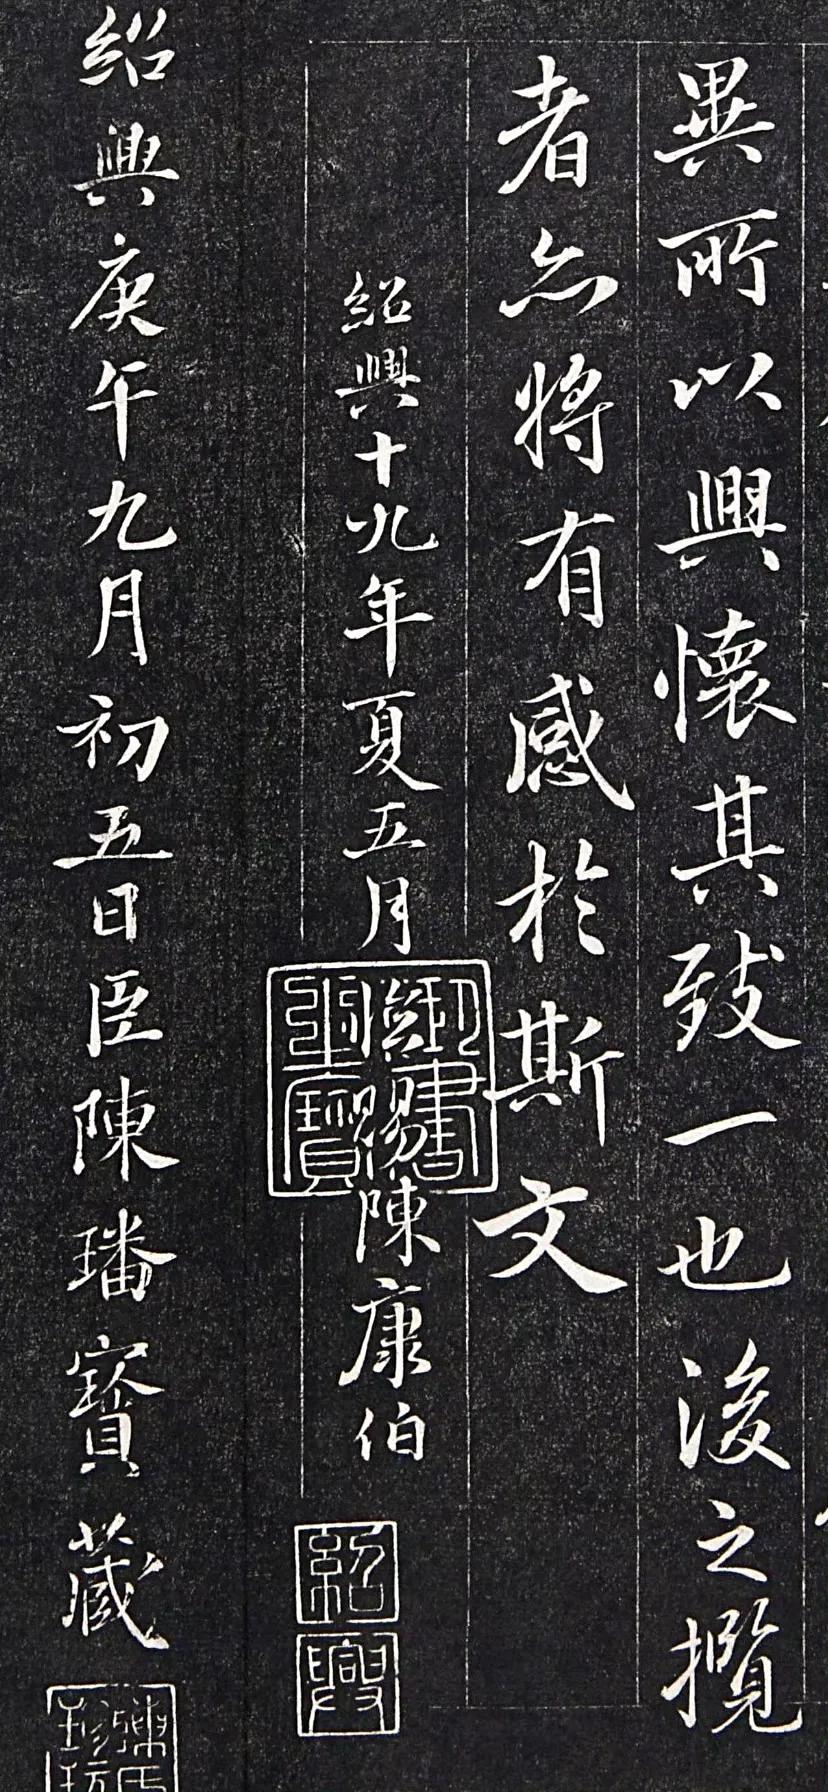 異所以興懷其致一也後之攬
者亦將有感於斯文
紹興十九年夏五月臨賜陳康伯
御書
之寶
紹興
紹興庚午九月初五日臣陳璠寶藏